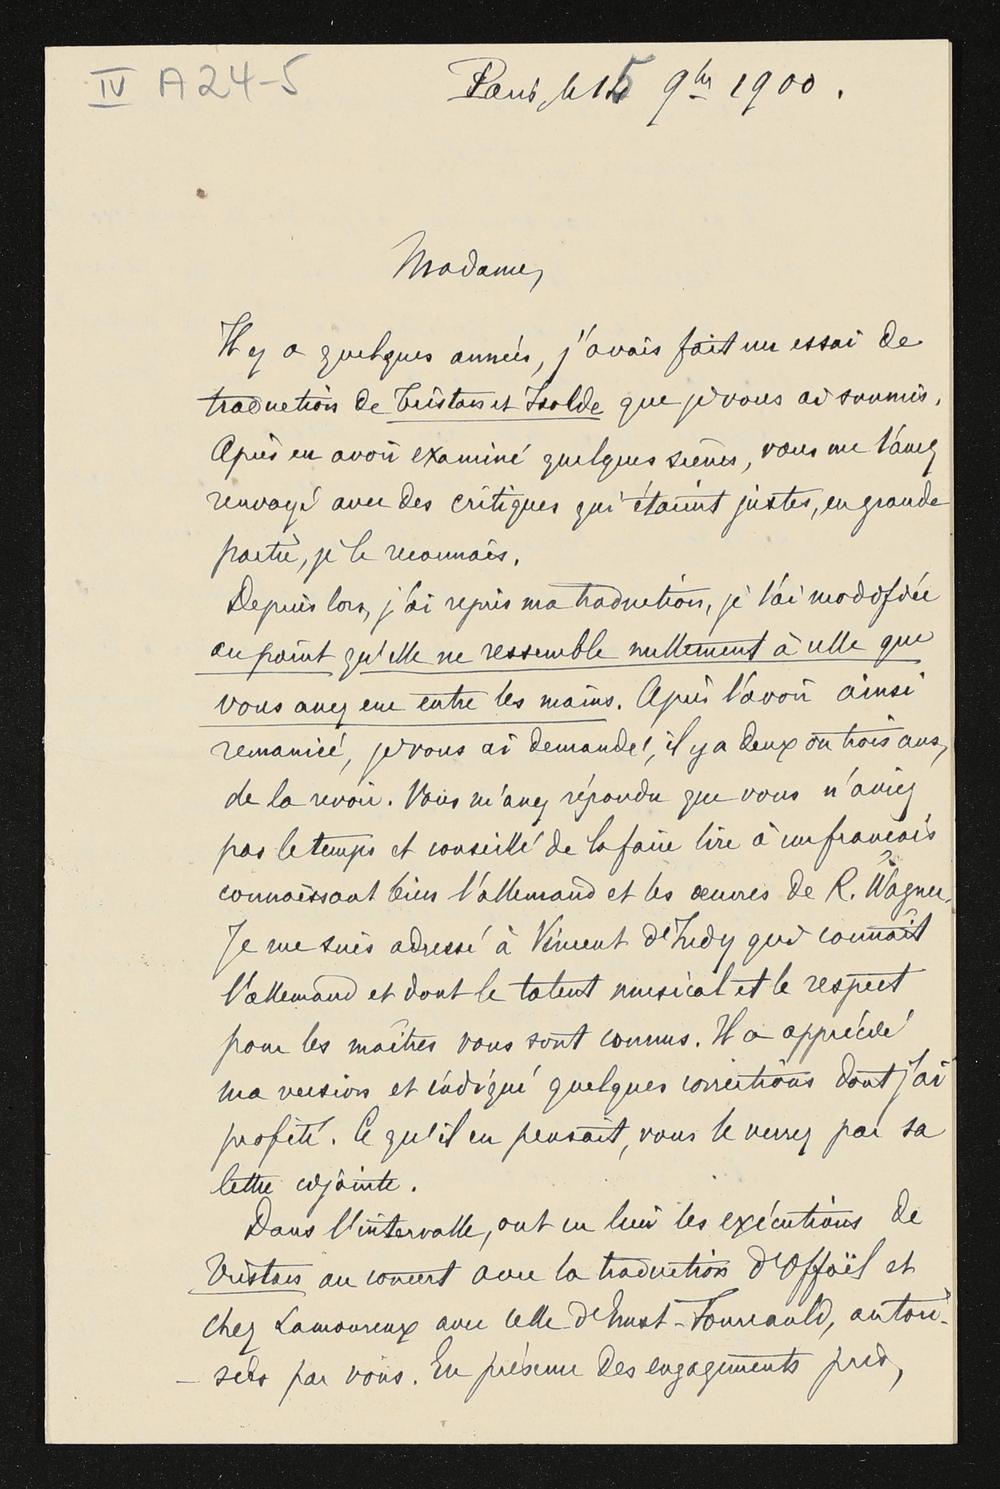 IV A24-5
Paris, le 15 9bre 1900.
Madame,
Il y a quelques années, j'avais fait un essai de
traduction de Tristan et Isolde que je vous ai soumis.
Après en avoir examiné quelques scènes, vous me l'avez
renvoyé avec des critiques qui étaient justes, en grande
partie, je le reconnais.
Depuis lors, j'ai repris ma traduction, je l'ai modifiée
au point qu'elle ne ressemble nullement à celle que
vous avez eue entre les mains. Après l'avoir ainsi
remaniée, je vous ai demandé, il y a deux ou trois ans,
de la revoir. Vous m'avez répondu que vous n'aviez
pas le temps et conseillé de la faire lire à un français
connaissant bien l'allemand et les œuvres de R. Wagner.
Je me suis adressé à Vincent d'Indy qui connaît
l'allemand et dont le talent musical et le respect
pour les maîtres vous sont connus. Il a apprécié
ma version et indiqué quelques corrections dont j'ai
profité. Ce qu'il en pensait, vous le verrez par sa
lettre cijointe.
Dans l'intervalle, ont eu lieu les exécutions de
Tristan au concert avec la traduction d'Offoël et
chez Lamoureux avec celle d'Ernst-Fourcauld, autori-
sées par vous. En présence des engagements pris,